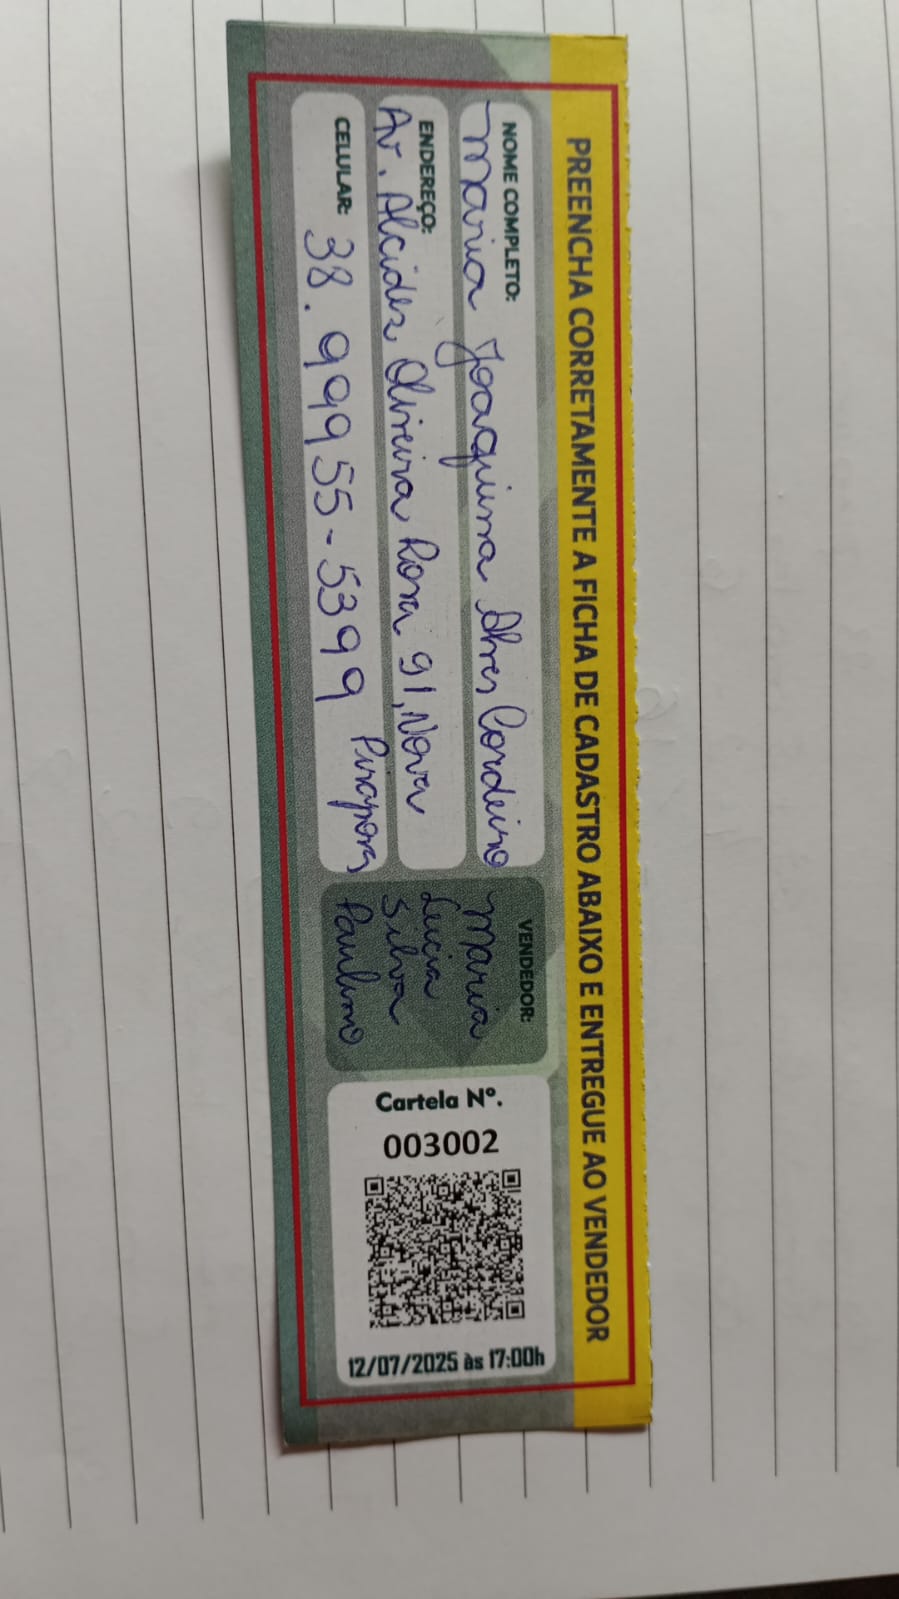 PREENCHA CORRETAMENTE A FICHA DE CADASTRO ABAIXO E ENTREGUE AO VENDEDOR
NOME COMPLETO:
Maria Joaquina Alves Cordeiro
ENDEREÇO:
Av. Alcides Oliveira Rosa 91, Nova
Pirapora
CELULAR: 38. 99955-5399
VENDEDOR:
Maria
Lucia
Silva
Paulino
Cartela Nº.
003002
12/07/2025 às 17:00h